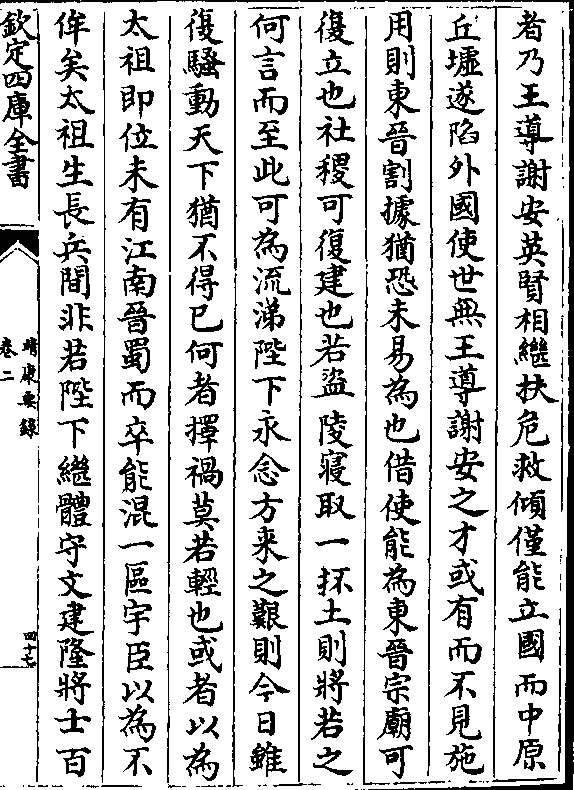 者乃王導謝安英賢相繼扶危救傾僅能立國而中原
丘墟遂陷外國使世無王導謝安之才或有而不見施
用則東晉割據猶恐未易為也借使能為東晉宗廟可
復立也社稷可復建也若盜陵寢取一抔土則將若之
何言而至此可為流涕陛下永念方来之艱則今日雖
復騷動天下猶不得已何者擇禍莫若輕也或者以為
太祖即位未有江南晉蜀而卒能混一區宇臣以為不
侔矣太祖生長兵間非若陛下繼體守文建隆將士百
欽定四庫全書
靖康要錄
卷二
四十七